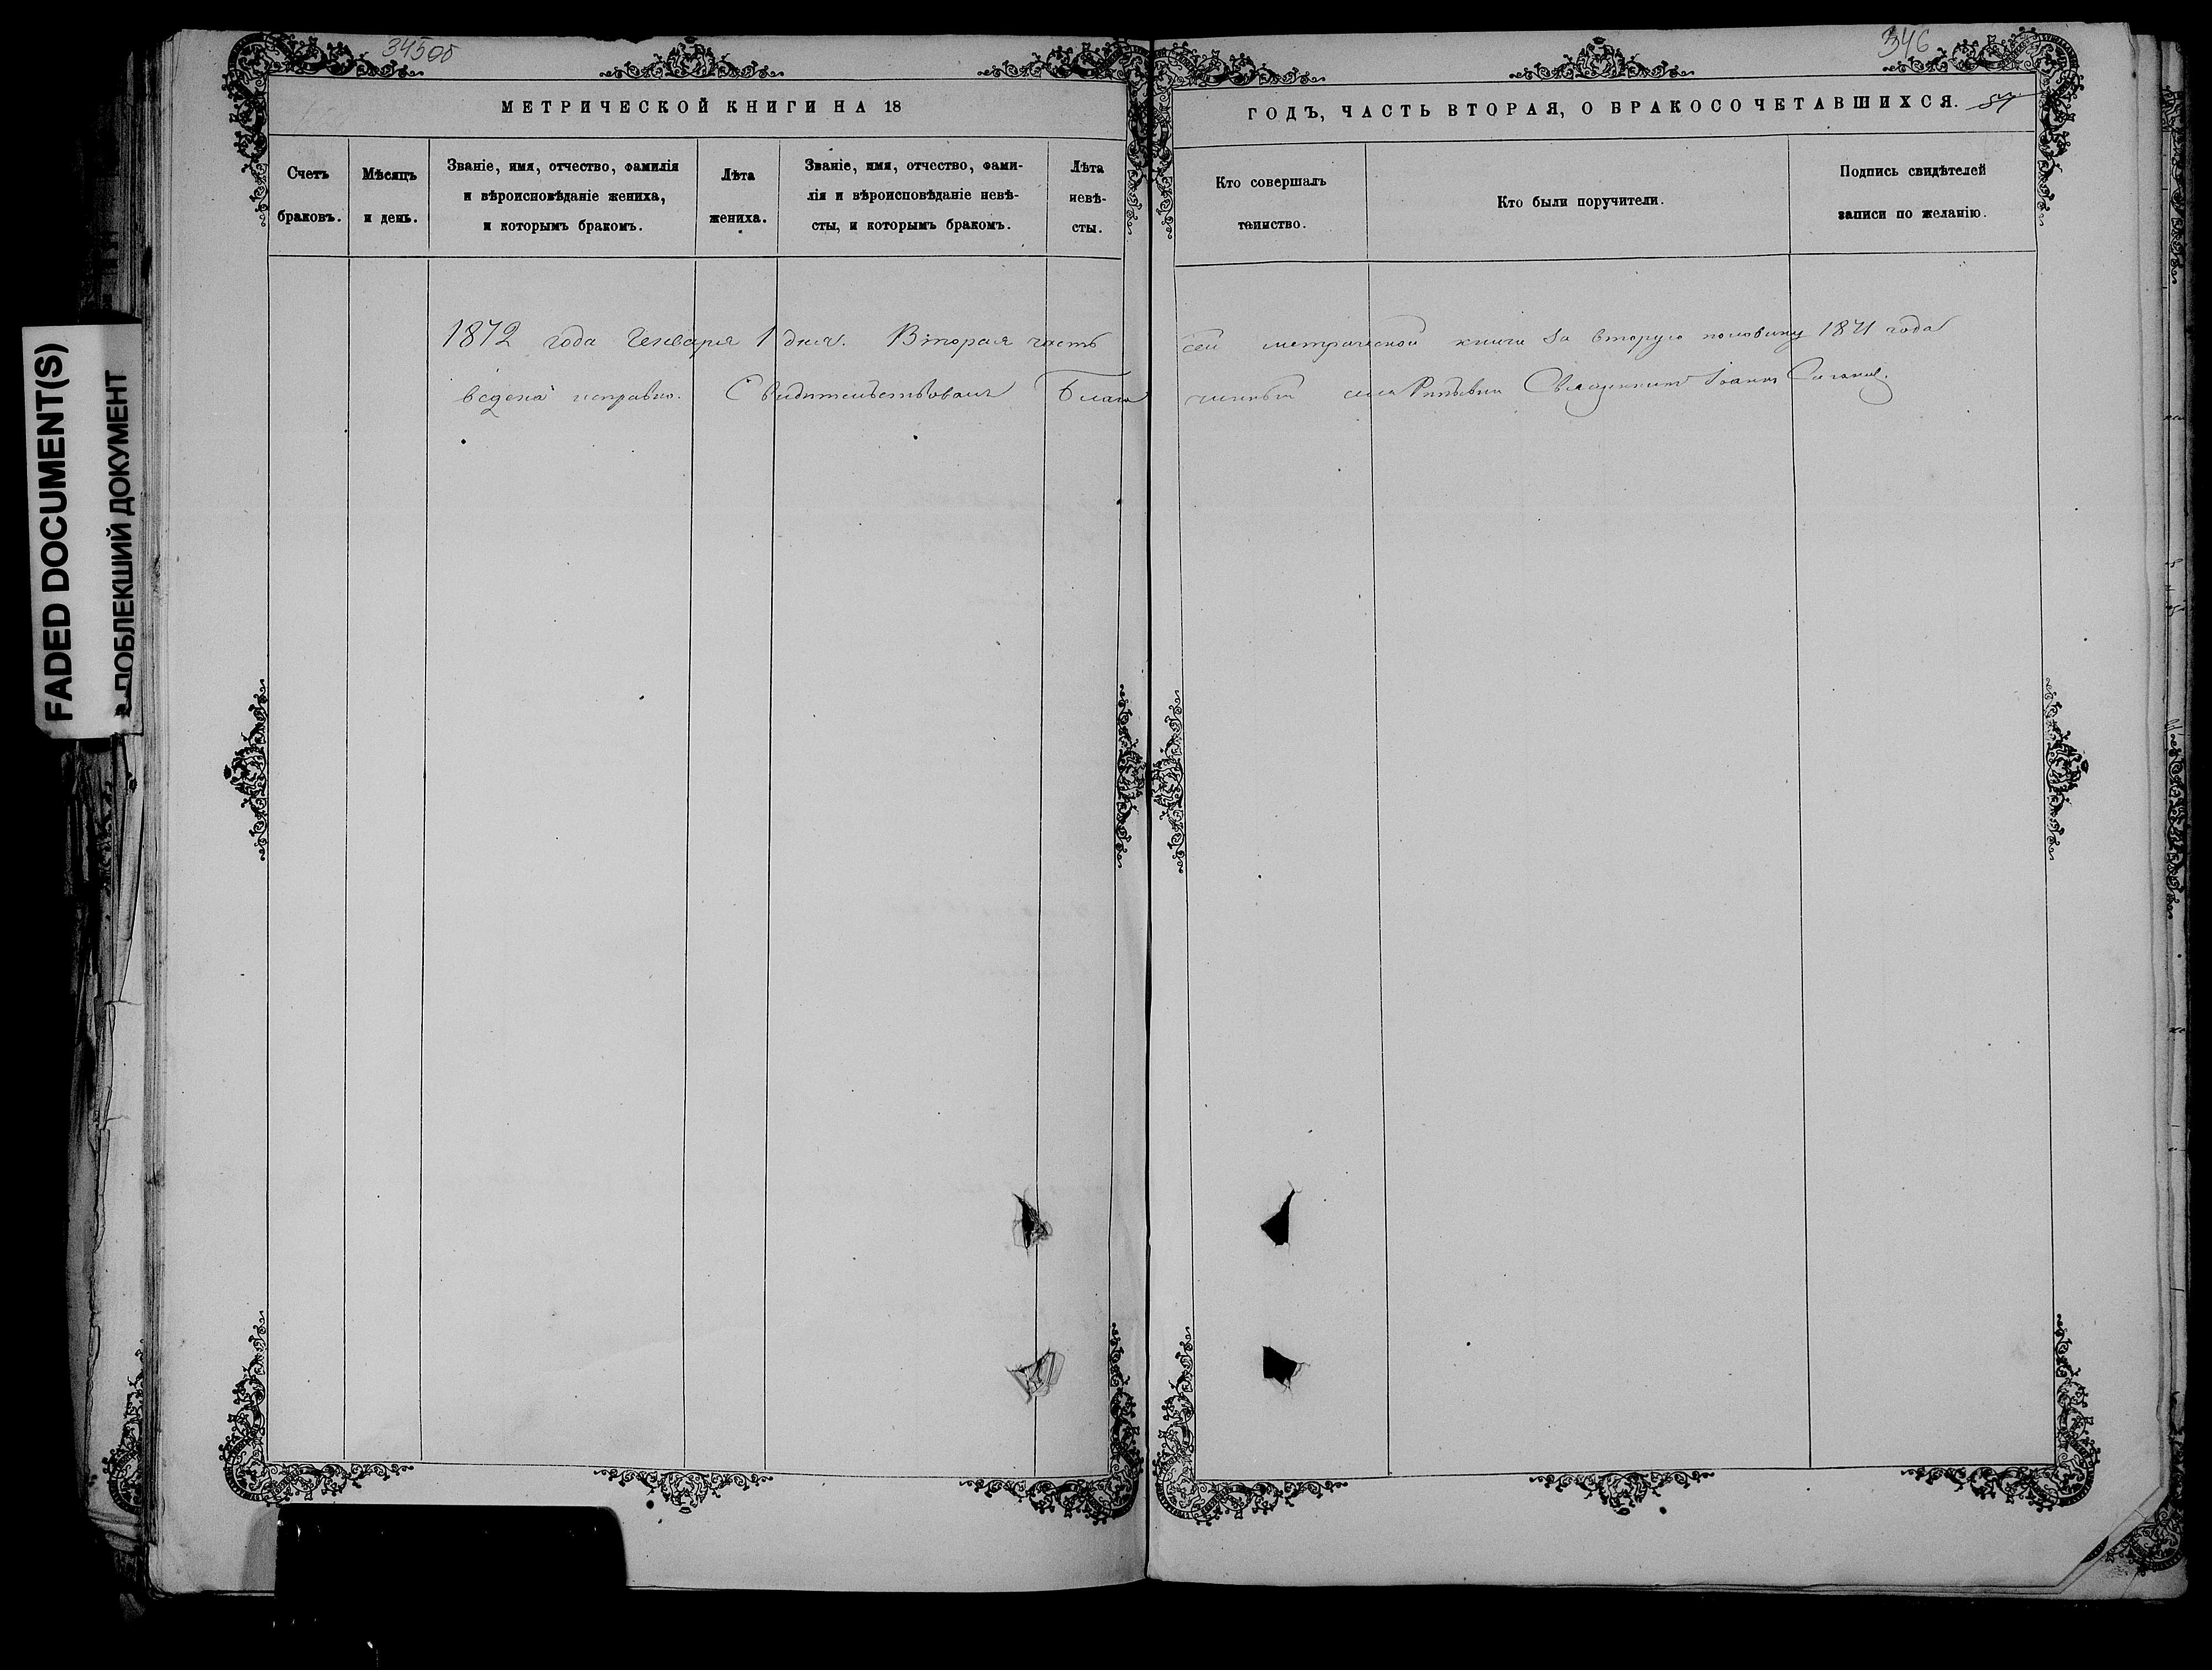 345об
МЕТРИЧЕСКОЙ КНИГИ НА 18
Счетъ браковъ.
Мѣсяцъ и день.
Званіе, имя, отчество, фамилія и вѣроисповѣданіе жениха, и которымъ бракомъ.
Лѣта жениха.
Званіе, имя, отчество, фами-
лія и вѣроисповѣданіе невѣ-
сты, и которымъ бракомъ.
Лѣта невѣ-
сты.
346
ГОДЪ, ЧАСТЬ ВТОРАЯ, О БРАКОСОЧЕТАВШИХСЯ.
57
Кто совершалъ таинство.
Кто были поручители.
Подпись свидѣтелей записи по желанію.
1872 года Генваря 1 дня. Вторая часть сей метрической книги за вторую половину 1871 года
ведена исправно. Свидѣтельствовалъ Благочинный Священникъ Іоаннъ
FADED DOCUMENT(S)
ПОБЛЕКШИЙ ДОКУМЕНТ